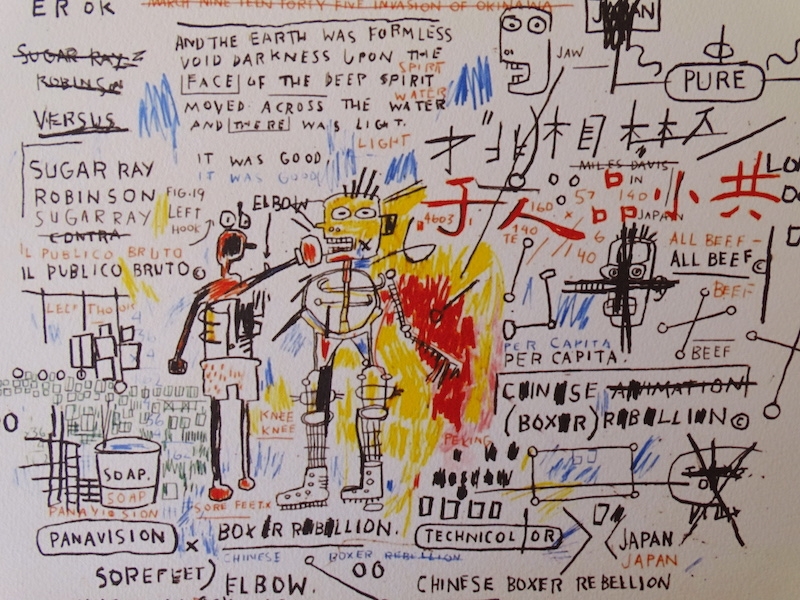 MARCH NINETEEN FORTY FIVE INVASION OF OKINAWA
SUGAR RAY
ROBINSON
VERSUS
AND THE EARTH WAS FORMLESS
VOID DARKNESS UPON THE
SPIRIT
FACE OF THE DEEP SPIRIT
WATER
MOVED ACROSS THE WATER
AND THERE WAS LIGHT.
LIGHT
IT WAS GOOD,
IT WAS GOOD
JAW
JAPAN
PURE
SUGAR RAY
ROBINSON
SUGAR RAY
CONTRA
IL PUBLICO BRUTO
IL PUBLICO BRUTO ©
FIG.19
LEFT
HOOK
ELBOW
MILES DAVIS
IN
JAPAN
人 品 小 共
4603
160
140
57
140
6
40
ALL BEEF
ALL BEEF ©
BEEF
BEEF
PER CAPITA
PER CAPITA.
LEFT HOOK
CHINESE ANIMATION
(BOXER) REBELLION ©
KNEE
KNEE
PEKING
MOSCOW
SOAP.
SOAP
PANAVISION
PANAVISION
SORE FEET.X
BOXER REBELLION.
CHINESE BOXER REBELLION
TECHNICOLOR
JAPAN
JAPAN
SOREFEET)
ELBOW.
CHINESE BOXER REBELLION